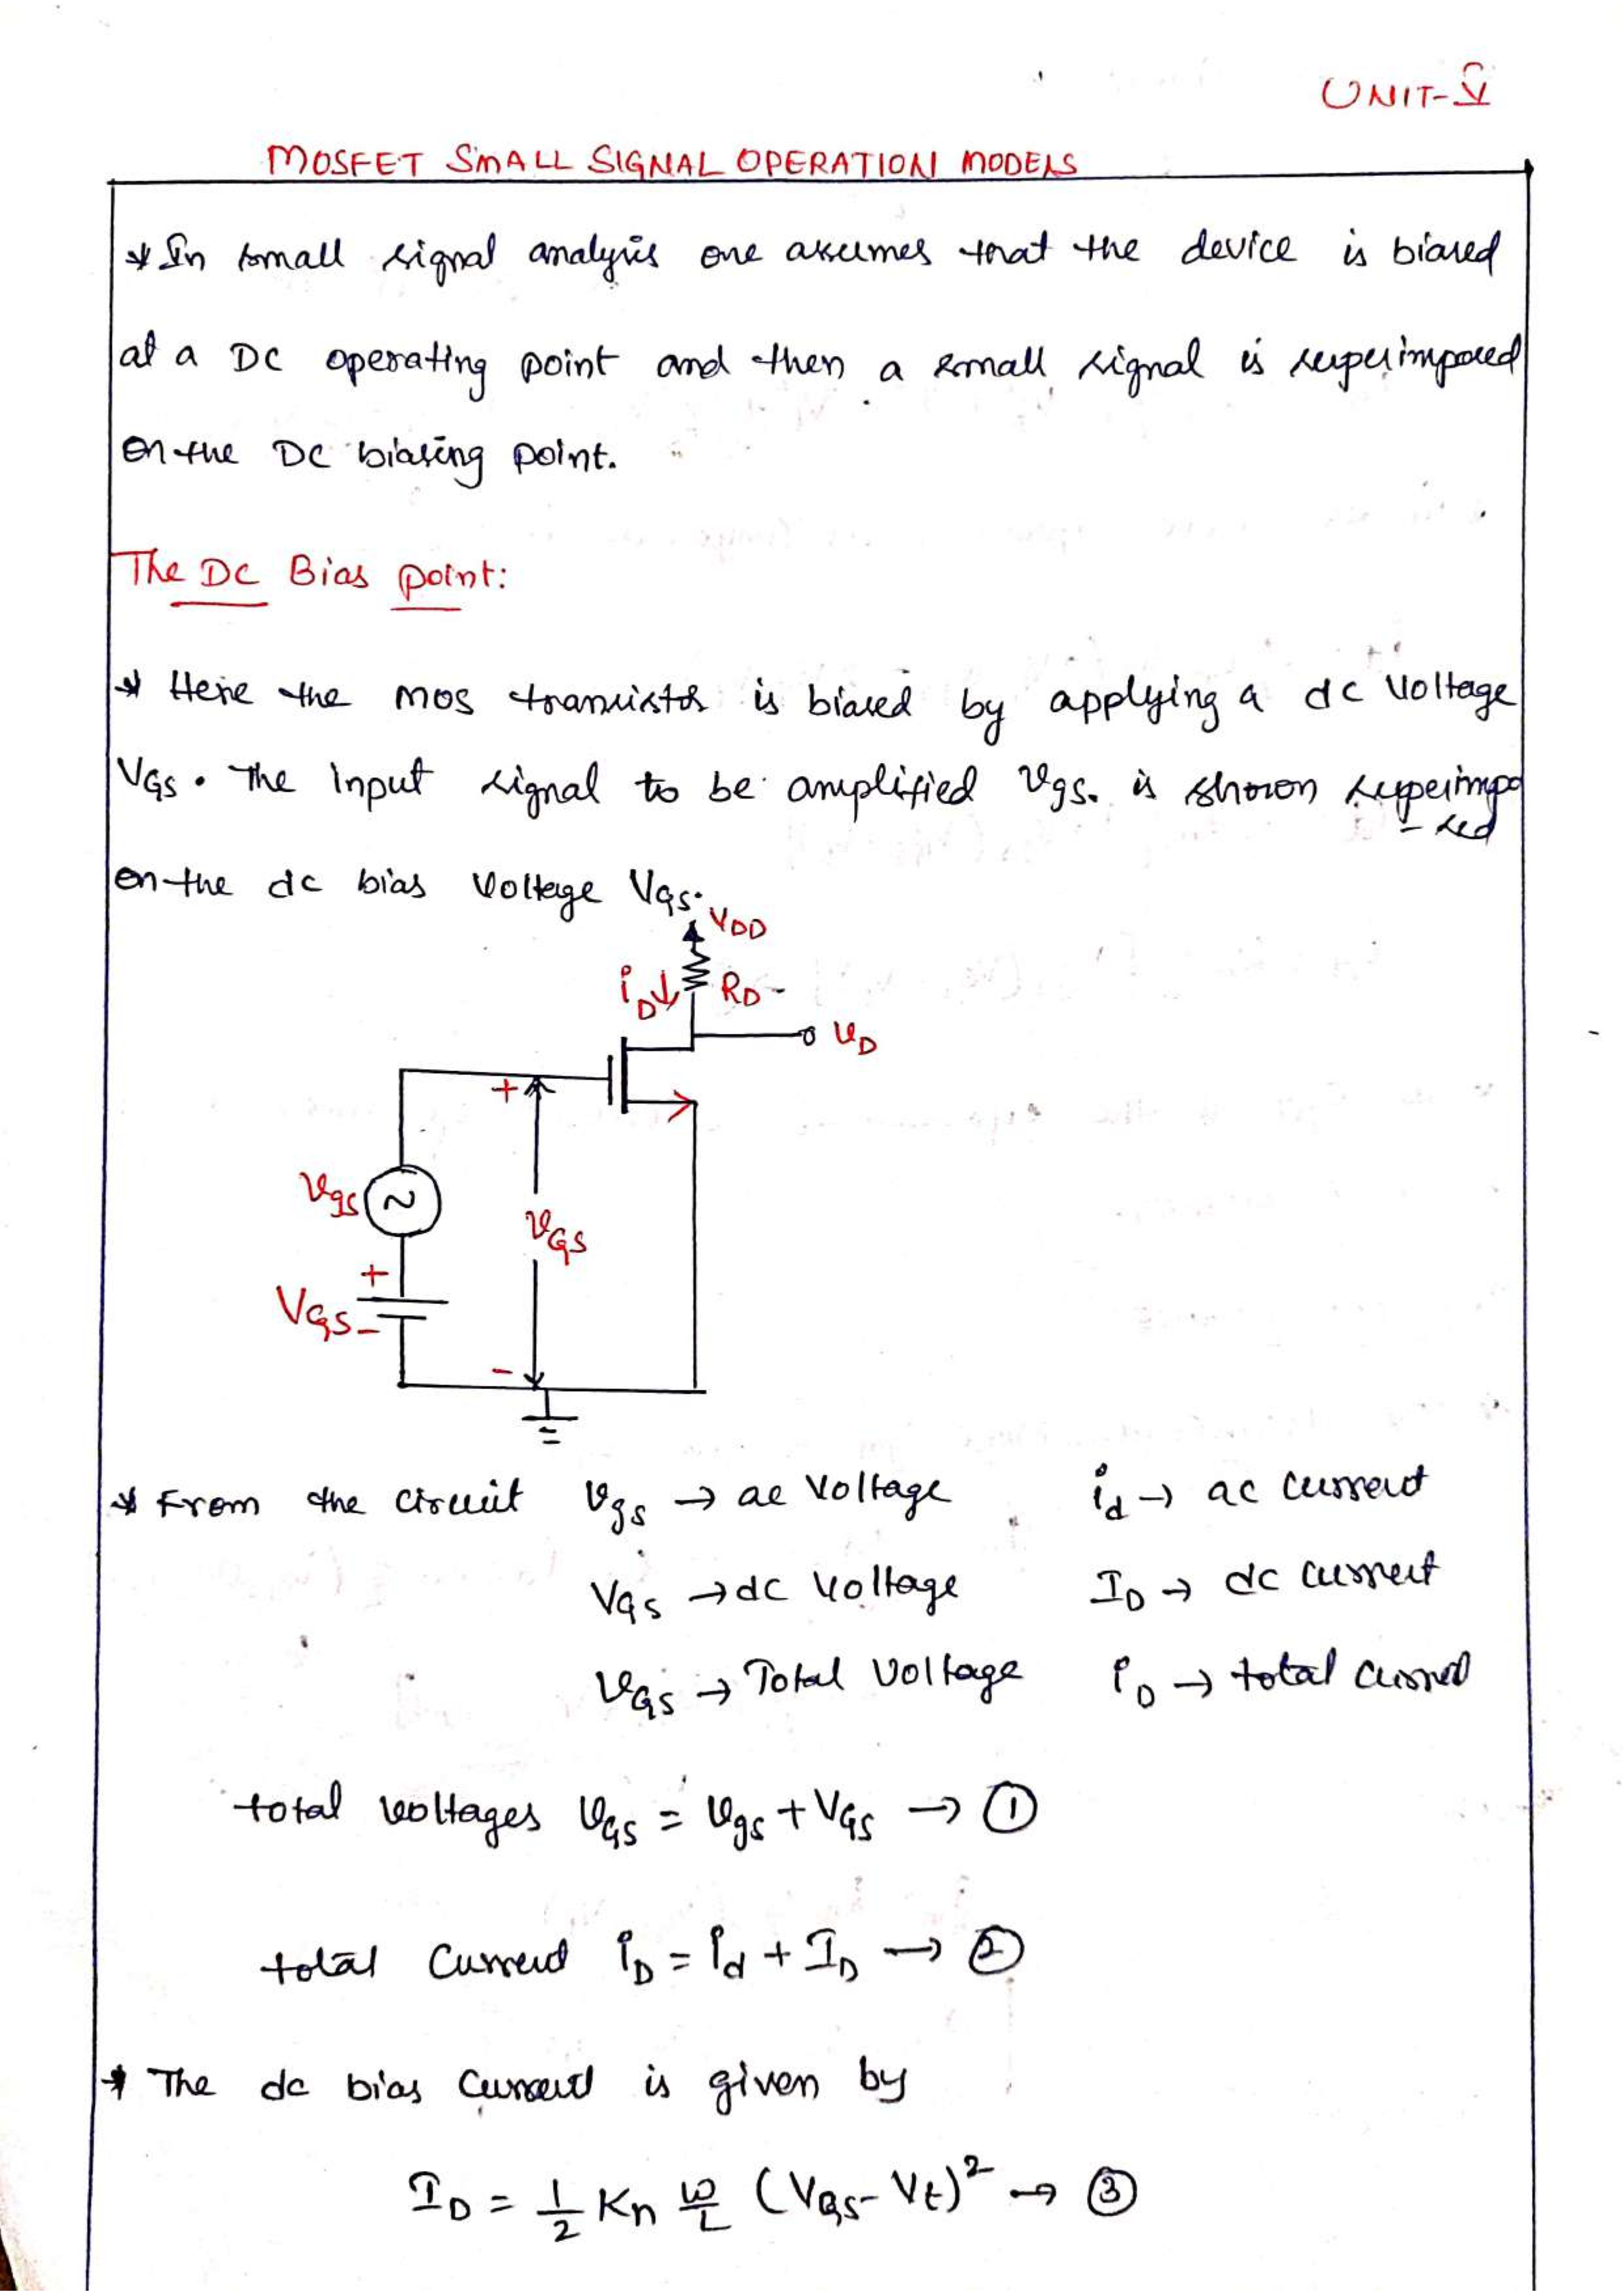 UNIT-V
MOSFET SMALL SIGNAL OPERATION MODELS
* In small signal analysis one assumes that the device is biased
at a DC operating point and then a small signal is superimposed
on the DC biasing point.
The DC Bias point:
* Here the MOS transistor is biased by applying a dc voltage
VGS. The input signal to be amplified vgs. is shown superimpo
-sed
on the dc bias voltage VGS.
VDD
iD↓ RD
vD
+
vgs ~
vGS
+
VGS
-
-
* From the circuit vgs → ac voltage id → ac current
VGS → dc voltage ID → dc current
vGS → Total voltage iD → total current
total voltages vGS = vgs + VGS → ①
total current iD = id + ID → ②
* The dc bias current is given by
ID = 1/2 Kn W/L (VGS - Vt)² → ③